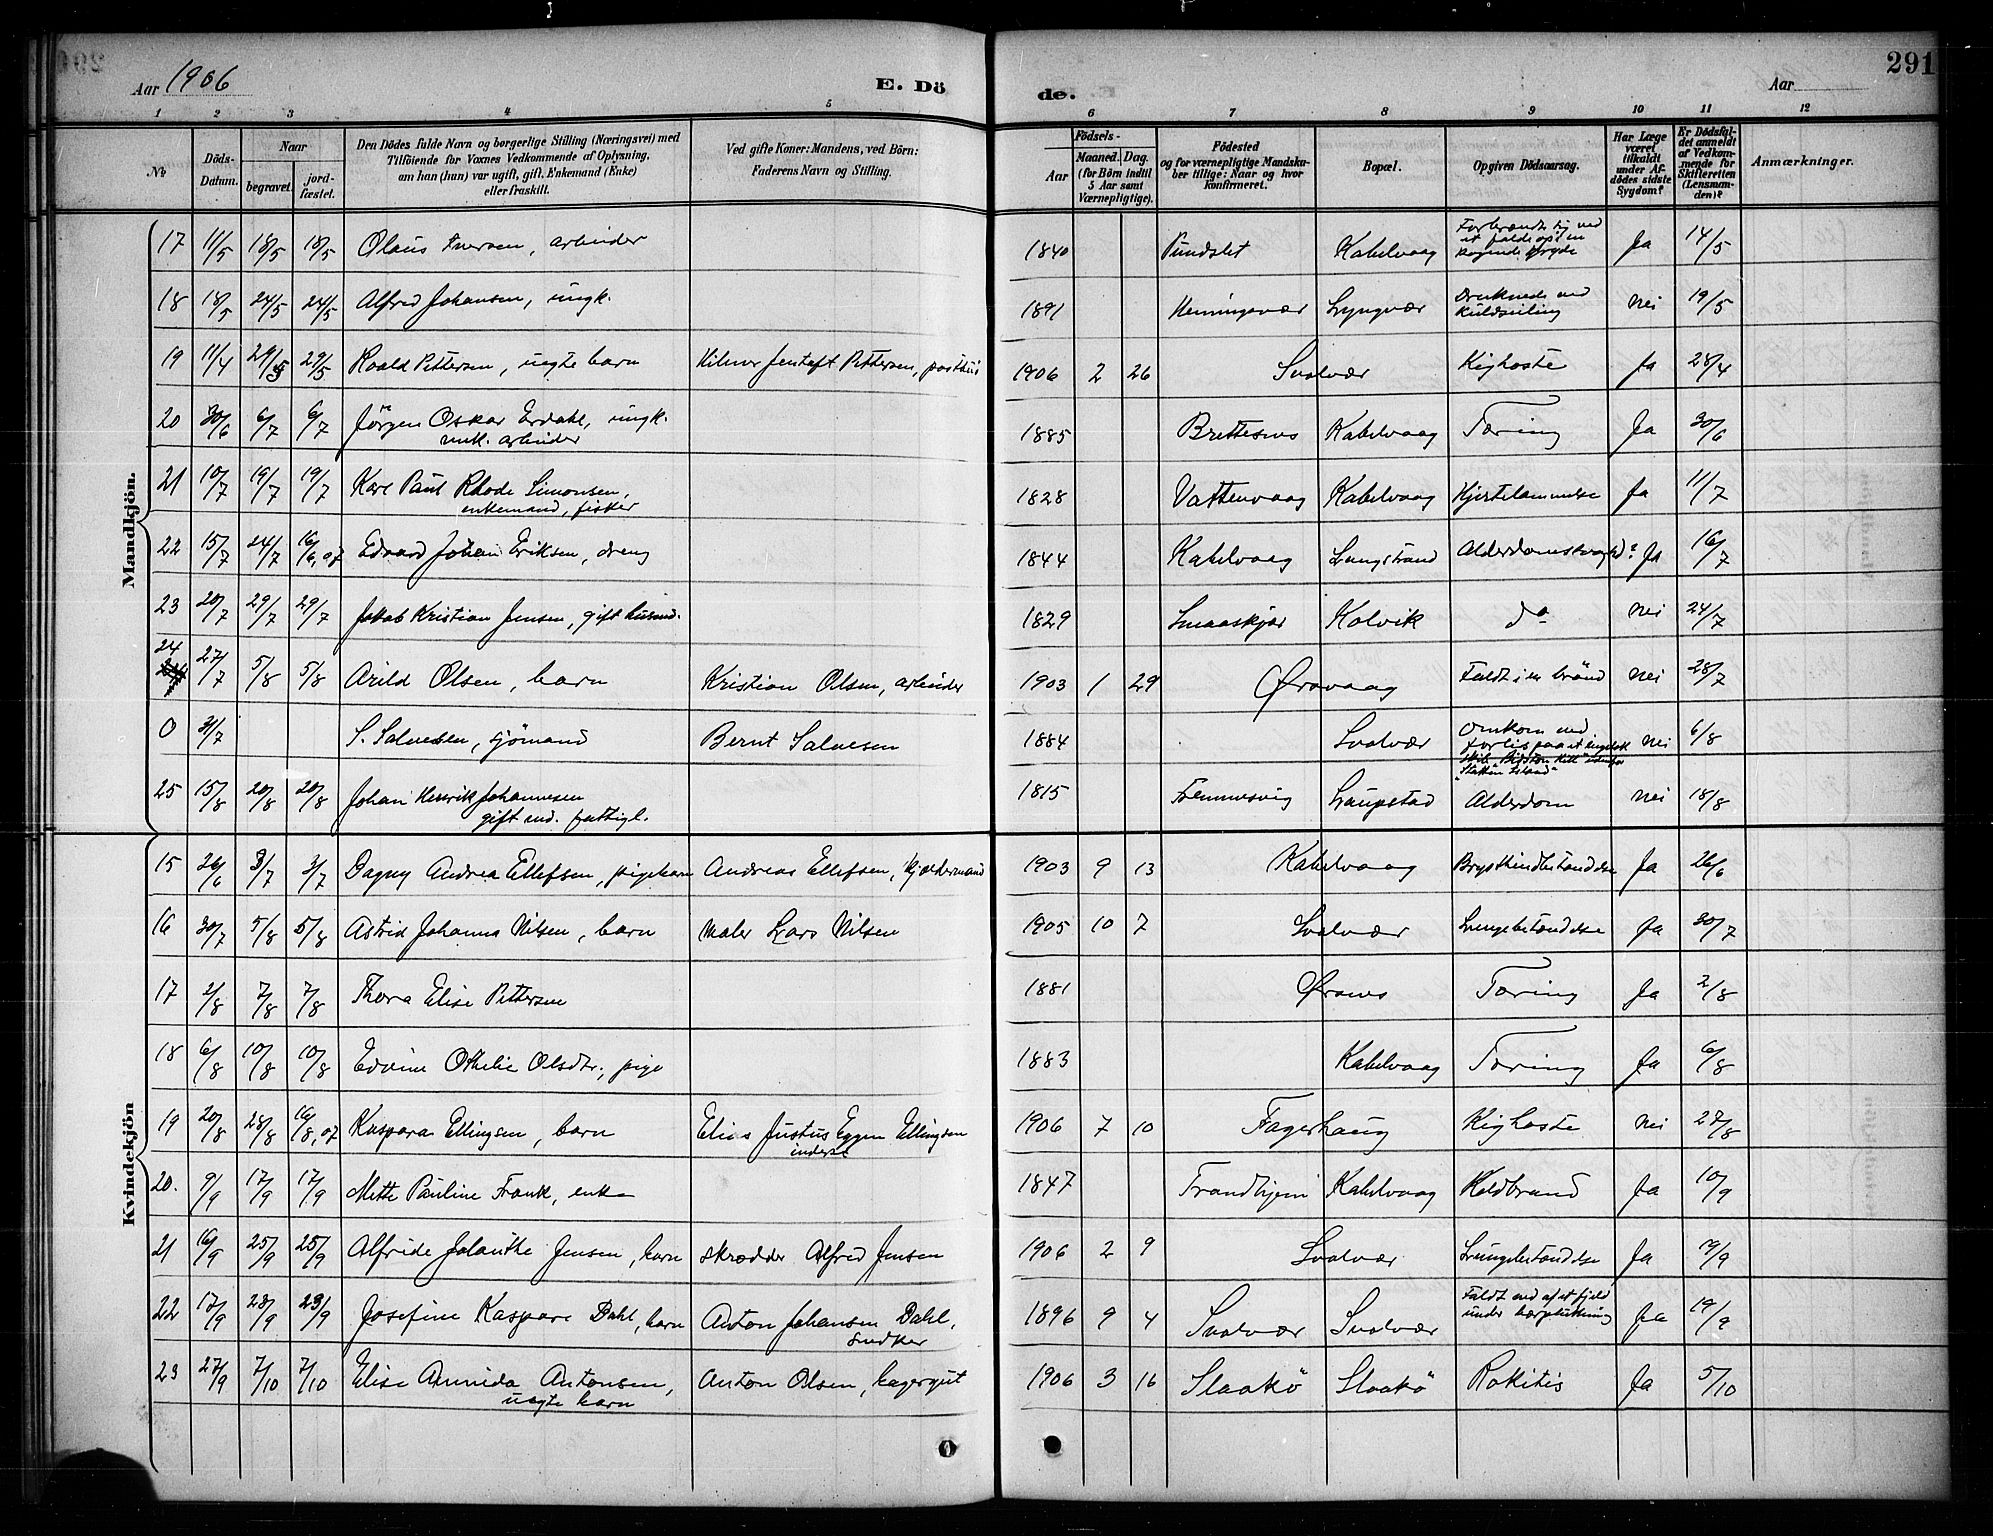 Aar 1906
E. Dö
de.
Aar
291
1 2 3 4 5 6 7 8 9 10 11 12
No
Döds-Datum.
Naar
begravet.
jord-fæstet.
Den Dödes fulde Navn og borgerlige Stilling (Næringsvei) med
Tilföiende for Voxnes Vedkommende af Oplysning,
om han (hun) var ugift, gift, Enkemand (Enke)
eller fraskilt.
Ved gifte Koner: Mandens, ved Börn:
Faderens Navn og Stilling.
Födsels-
Aar
Maaned. Dag.
(for Börn indtil
5 Aar samt
Værnepligtige).
Födested
og for værnepligtige Mandska-
ber tillige: Naar og hvor
konfirmeret.
Bopæl.
Opgiven Dödsaarsag.
Har Læge
været
tilkaldt
under Af-
dödes sidste
Sygdom?
Er Dödsfal-
det anmeldt
af Vedkom-
mende for
Skifteretten
(Lensman-
den)?
Anmærkninger.
Mandkjön.
17 11/5 18/5 18/5 Olaus Iversen, arbeider 1840 Pundslet Kabelvaag Forbrændte sig ved et fald op i en kogende gryde Ja 14/5
18 18/5 24/5 24/5 Alfred Johansen, ungk. 1891 Henningsvær Lyngvær Druknede ved kuldseiling Nei 19/5
19 11/4 29/5 29/5 Roald Pettersen, uegte barn Hilmer Jentoft Pettersen, 1906 2 26 Svolvær Kighoste Ja 28/4
20 30/6 6/7 6/7 Jörgen Oskar Erdahl, ungk.
arbeider 1885 Brettesnes Kabelvaag Tæring Ja 30/6
21 10/7 19/7 19/7 Karl Paul Rhode Simonsen,
enkemand, fisker 1828 Vattervaag Kabelvaag Hjertelammelse Ja 11/7
22 15/7 24/7 16/6,07 Edvard Johan Eriksen, dreng 1844 Kabelvaag Lungstrand Alderdomssvaghed? Ja 16/7
23 20/7 29/7 29/7 Jakob Kristian Jensen, gift husmd. 1829 Smaaskjær Kalvik do Nei 24/7
24 27/7 5/8 5/8 Arild Olsen, barn Kristian Olsen, arbeider 1903 1 29 Ørsvaag Faldt i en brönd Nei 28/7
0 31/7 S. Salvesen, sjömand Bernt Salvesen 1884 Svolvær Omkom ved forlis paa et engelsk skib Nei 6/8
25 15/8 20/8 20/8 Johan Henrik Johannesen
gift md. fattigl. 1815 Femmesvig Laupstad Alderdom Nei 18/8
Kvindekjön
15 26/6 3/7 3/7 Dagny Andrea Ellefsen, pigebarn Andreas Ellefsen, kjældermand 1903 9 13 Kabelvaag Brysthindebetændelse Ja 26/6
16 30/7 5/8 5/8 Astrid Johanna Nilsen, barn Maler Lars Nilsen 1905 10 7 Svolvær Lungebetændelse Ja 30/7
17 2/8 7/8 7/8 Thora Elise Pettersen 1881 Ørsnes Tæring Ja 2/8
18 6/8 10/8 10/8 Edvine Othelie Olsdtr., pige 1883 Kabelvaag Tæring Ja 6/8
19 20/8 28/8 16/8,07 Kaspara Ellingsen, barn Elias Justus Eggen Ellingsen
inderst 1906 7 10 Fagerhaug Kighoste Nei 27/8
20. 9/9 17/9 17/9 Mette Pauline Frank, enke 1847 Trondhjem Kabelvaag Koldbrand Ja 10/9
21 16/9 25/9 25/9 Alfride Jolanthe Jensen, barn skrædder Alfred Jensen 1906 2 9 Svolvær Lungebetændelse Ja 19/9
22 17/9 23/9 23/9 Josefine Kaspara Dahl, barn Anton Johansen Dahl,
snedker 1896 9 4 Svolvær Svolvær Faldt ned af et fjeld under bærplukning Ja 19/9
23 27/9 7/10 7/10 Elise Antonsen,
uegte barn Anton Olsen, bagergut 1906 3 16 Slaakö Slaakö Rakitis Ja 5/10